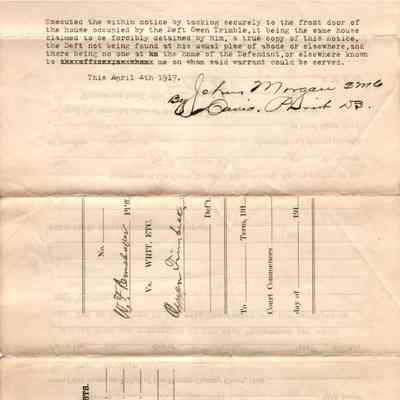 Executed the within notice by tacking securely to the front door of
the house occupied by the Deft Owen Trimble,it being the same house
claimed to be forcibly detained by him, a true copy of this notice,
the Deft not being found at his usual place of abode or elsewhere,and
there being no one at the home of the Defendant,or elsewhere known
to me on whom said warrant could be served.
This April 4th 1917.
Johns Morgan
By Davis.
No.
Pl'ff.
Vs. WRIT, ETC.
Owen Trimble
Def't.
To Term, 191
Court Commences
day of 191